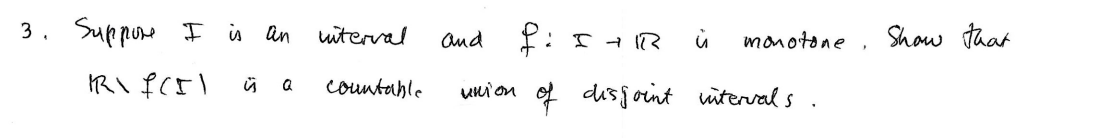 3. Suppose I is an interval and f: I → ℝ is monotone. Show that
ℝ\f(I) is a countable union of disjoint intervals.